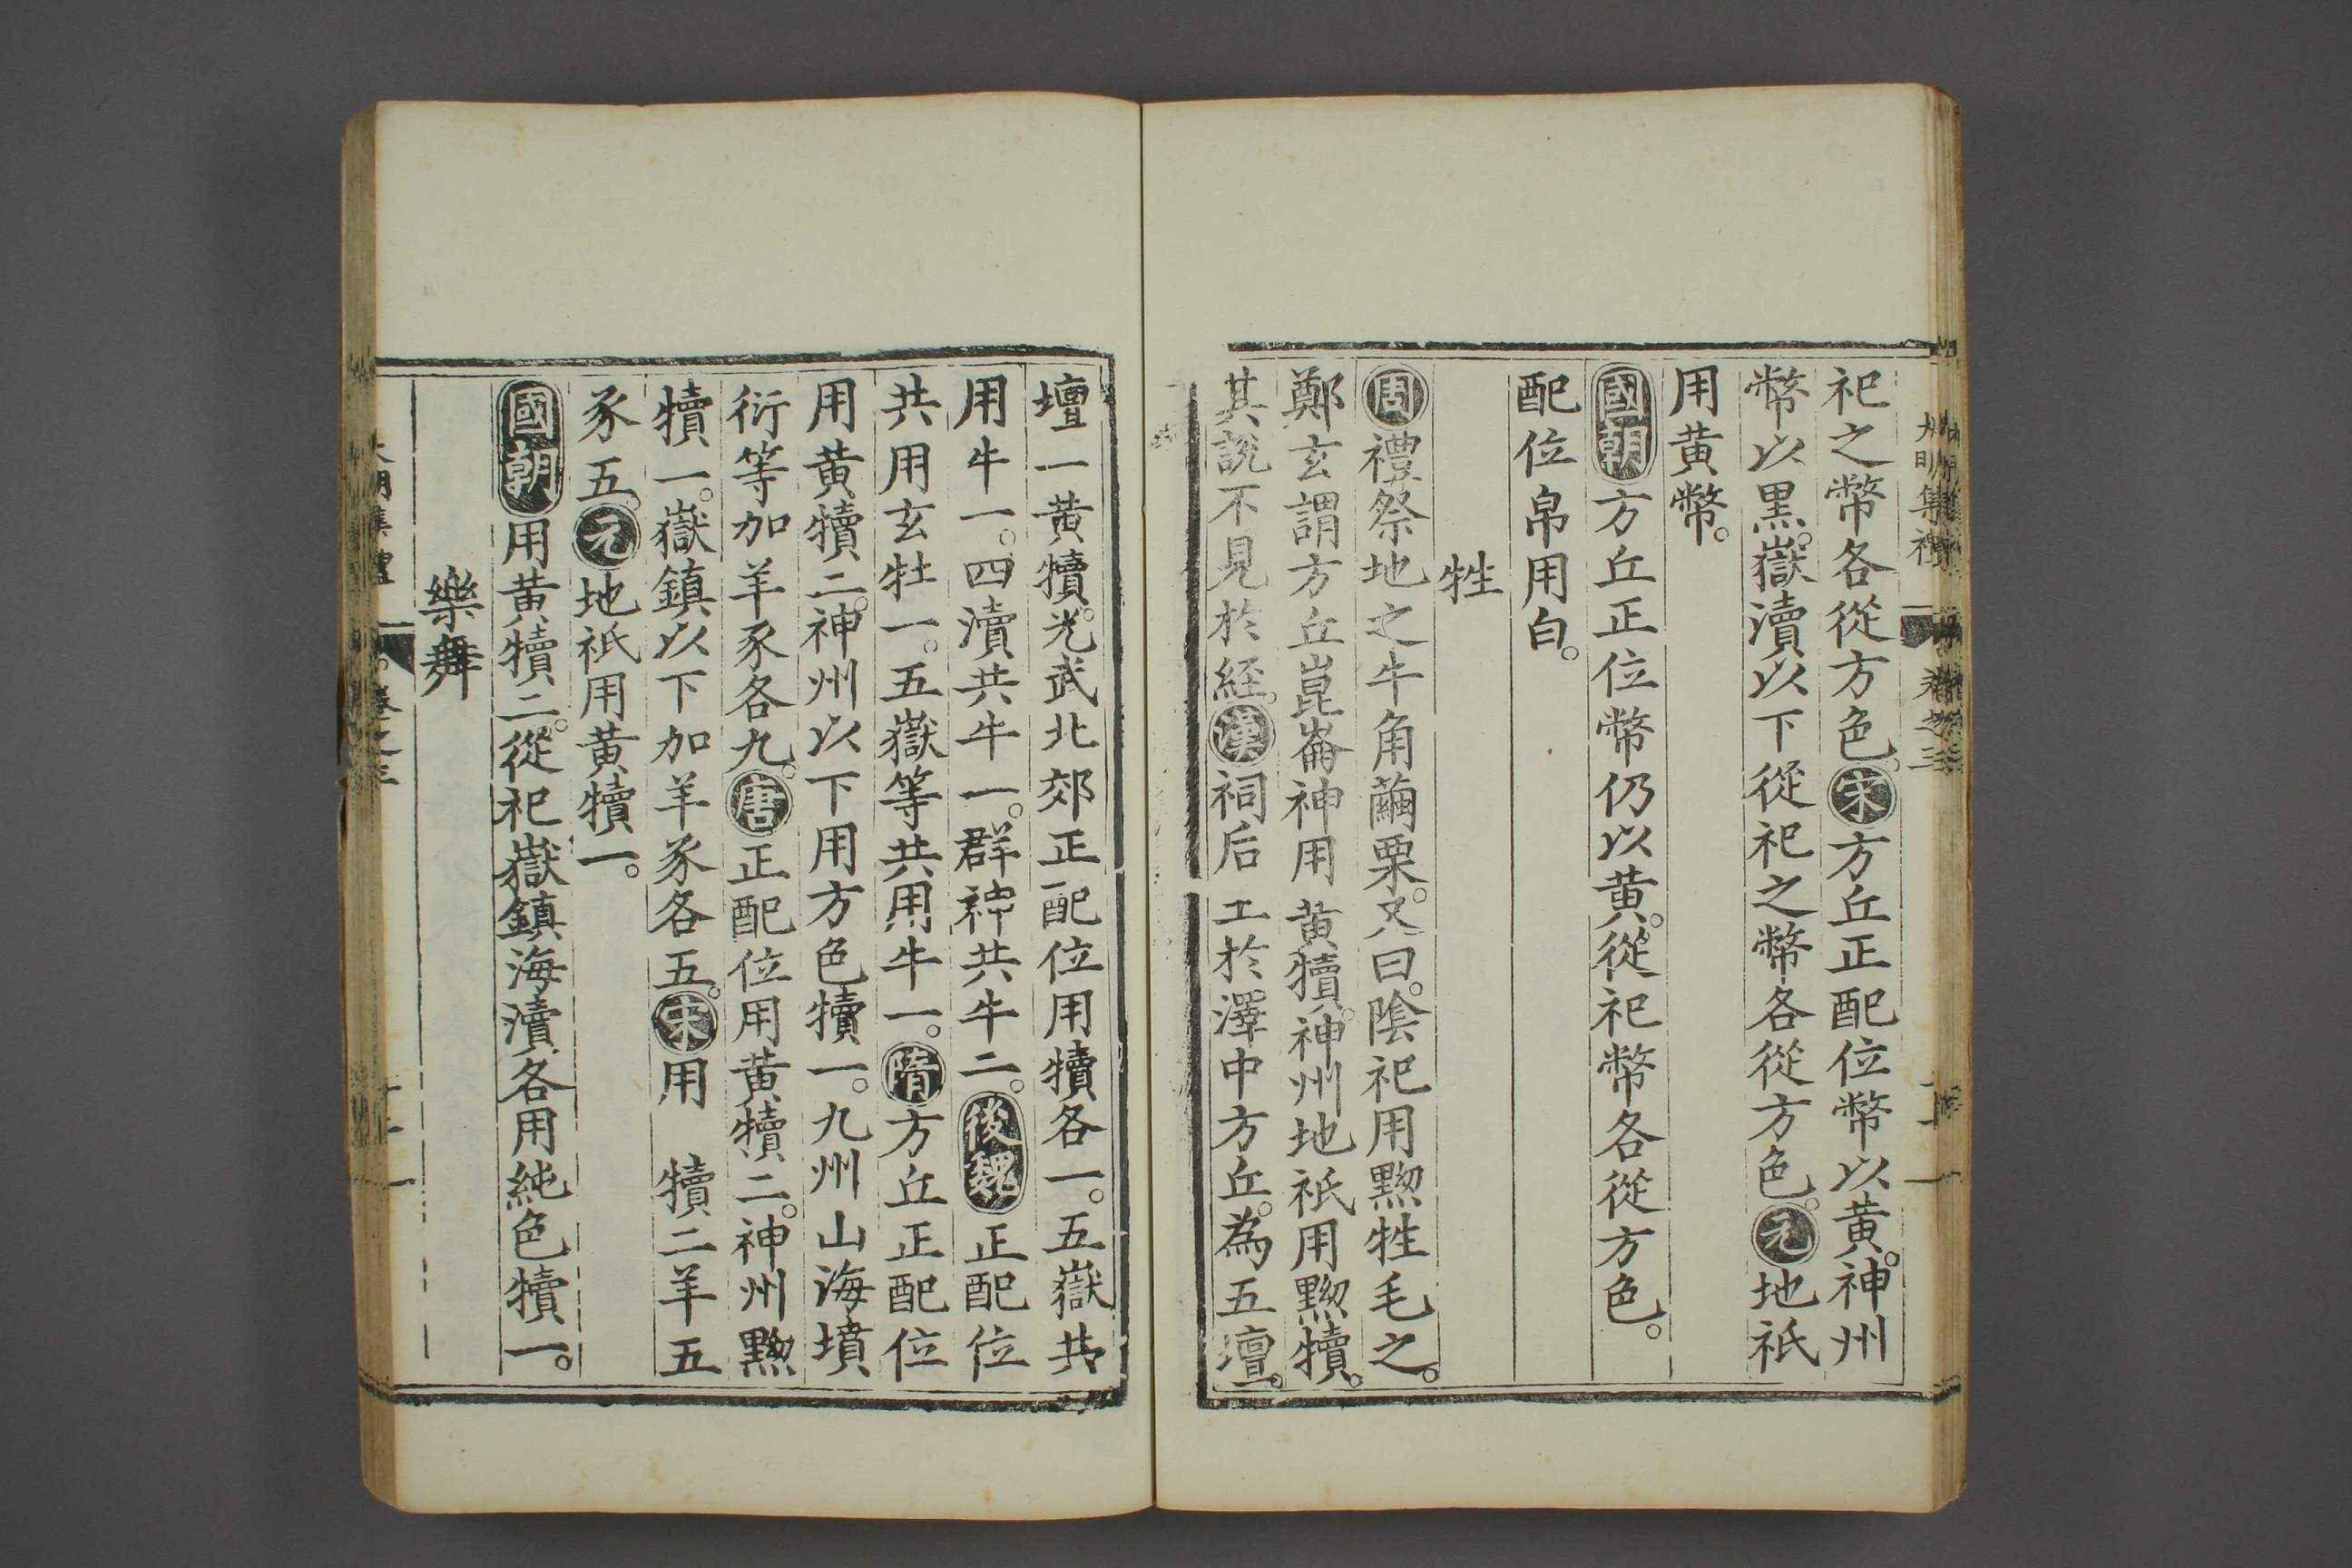 祀之幣各從方色。宋方丘正配位幣以黃。神州
幣以黑。嶽瀆以下從祀之幣各從方色。元地祇
用黃幣。
國朝方丘正位幣仍以黃。從祀幣各從方色。
配位帛用白。
牲
周禮祭地之牛角繭栗。又曰。陰祀用黝牲毛之。
鄭玄謂方丘崑崙神用黃犢。神州地祇用黝犢。
其說不見於經。漢祠后土於澤中方丘。為五壇。
壇一黃犢。光武北郊正配位用犢各一。五嶽共
用牛一。四瀆共牛一。群神共牛二。後魏正配位
共用玄牡一。五嶽等共用牛一。隋方丘正配位
用黃犢二。神州以下用方色犢一。九州山海墳
衍等加羊豕各九。唐正配位用黃犢二。神州黝
犢一。嶽鎮以下加羊豕各五。宋用 犢二羊五
豕五。元地祇用黃犢一。
國朝用黃犢二。從祀嶽鎮海瀆各用純色犢一。
樂舞
大明集禮 卷之三